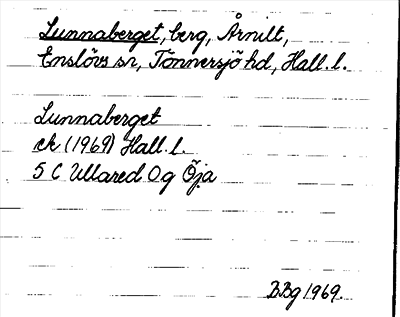 Lunnaberget, berg, Årnilt,
Enslövs sn, Tönnersjö hd, Hall. l.
Lunnaberget
ek (1969) Hall. l.
5 C Ullared Og Öja
BBg 1969.